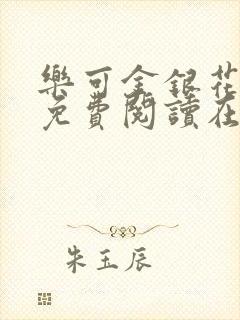 樂可金銀花
免費閱讀在
朱玉辰